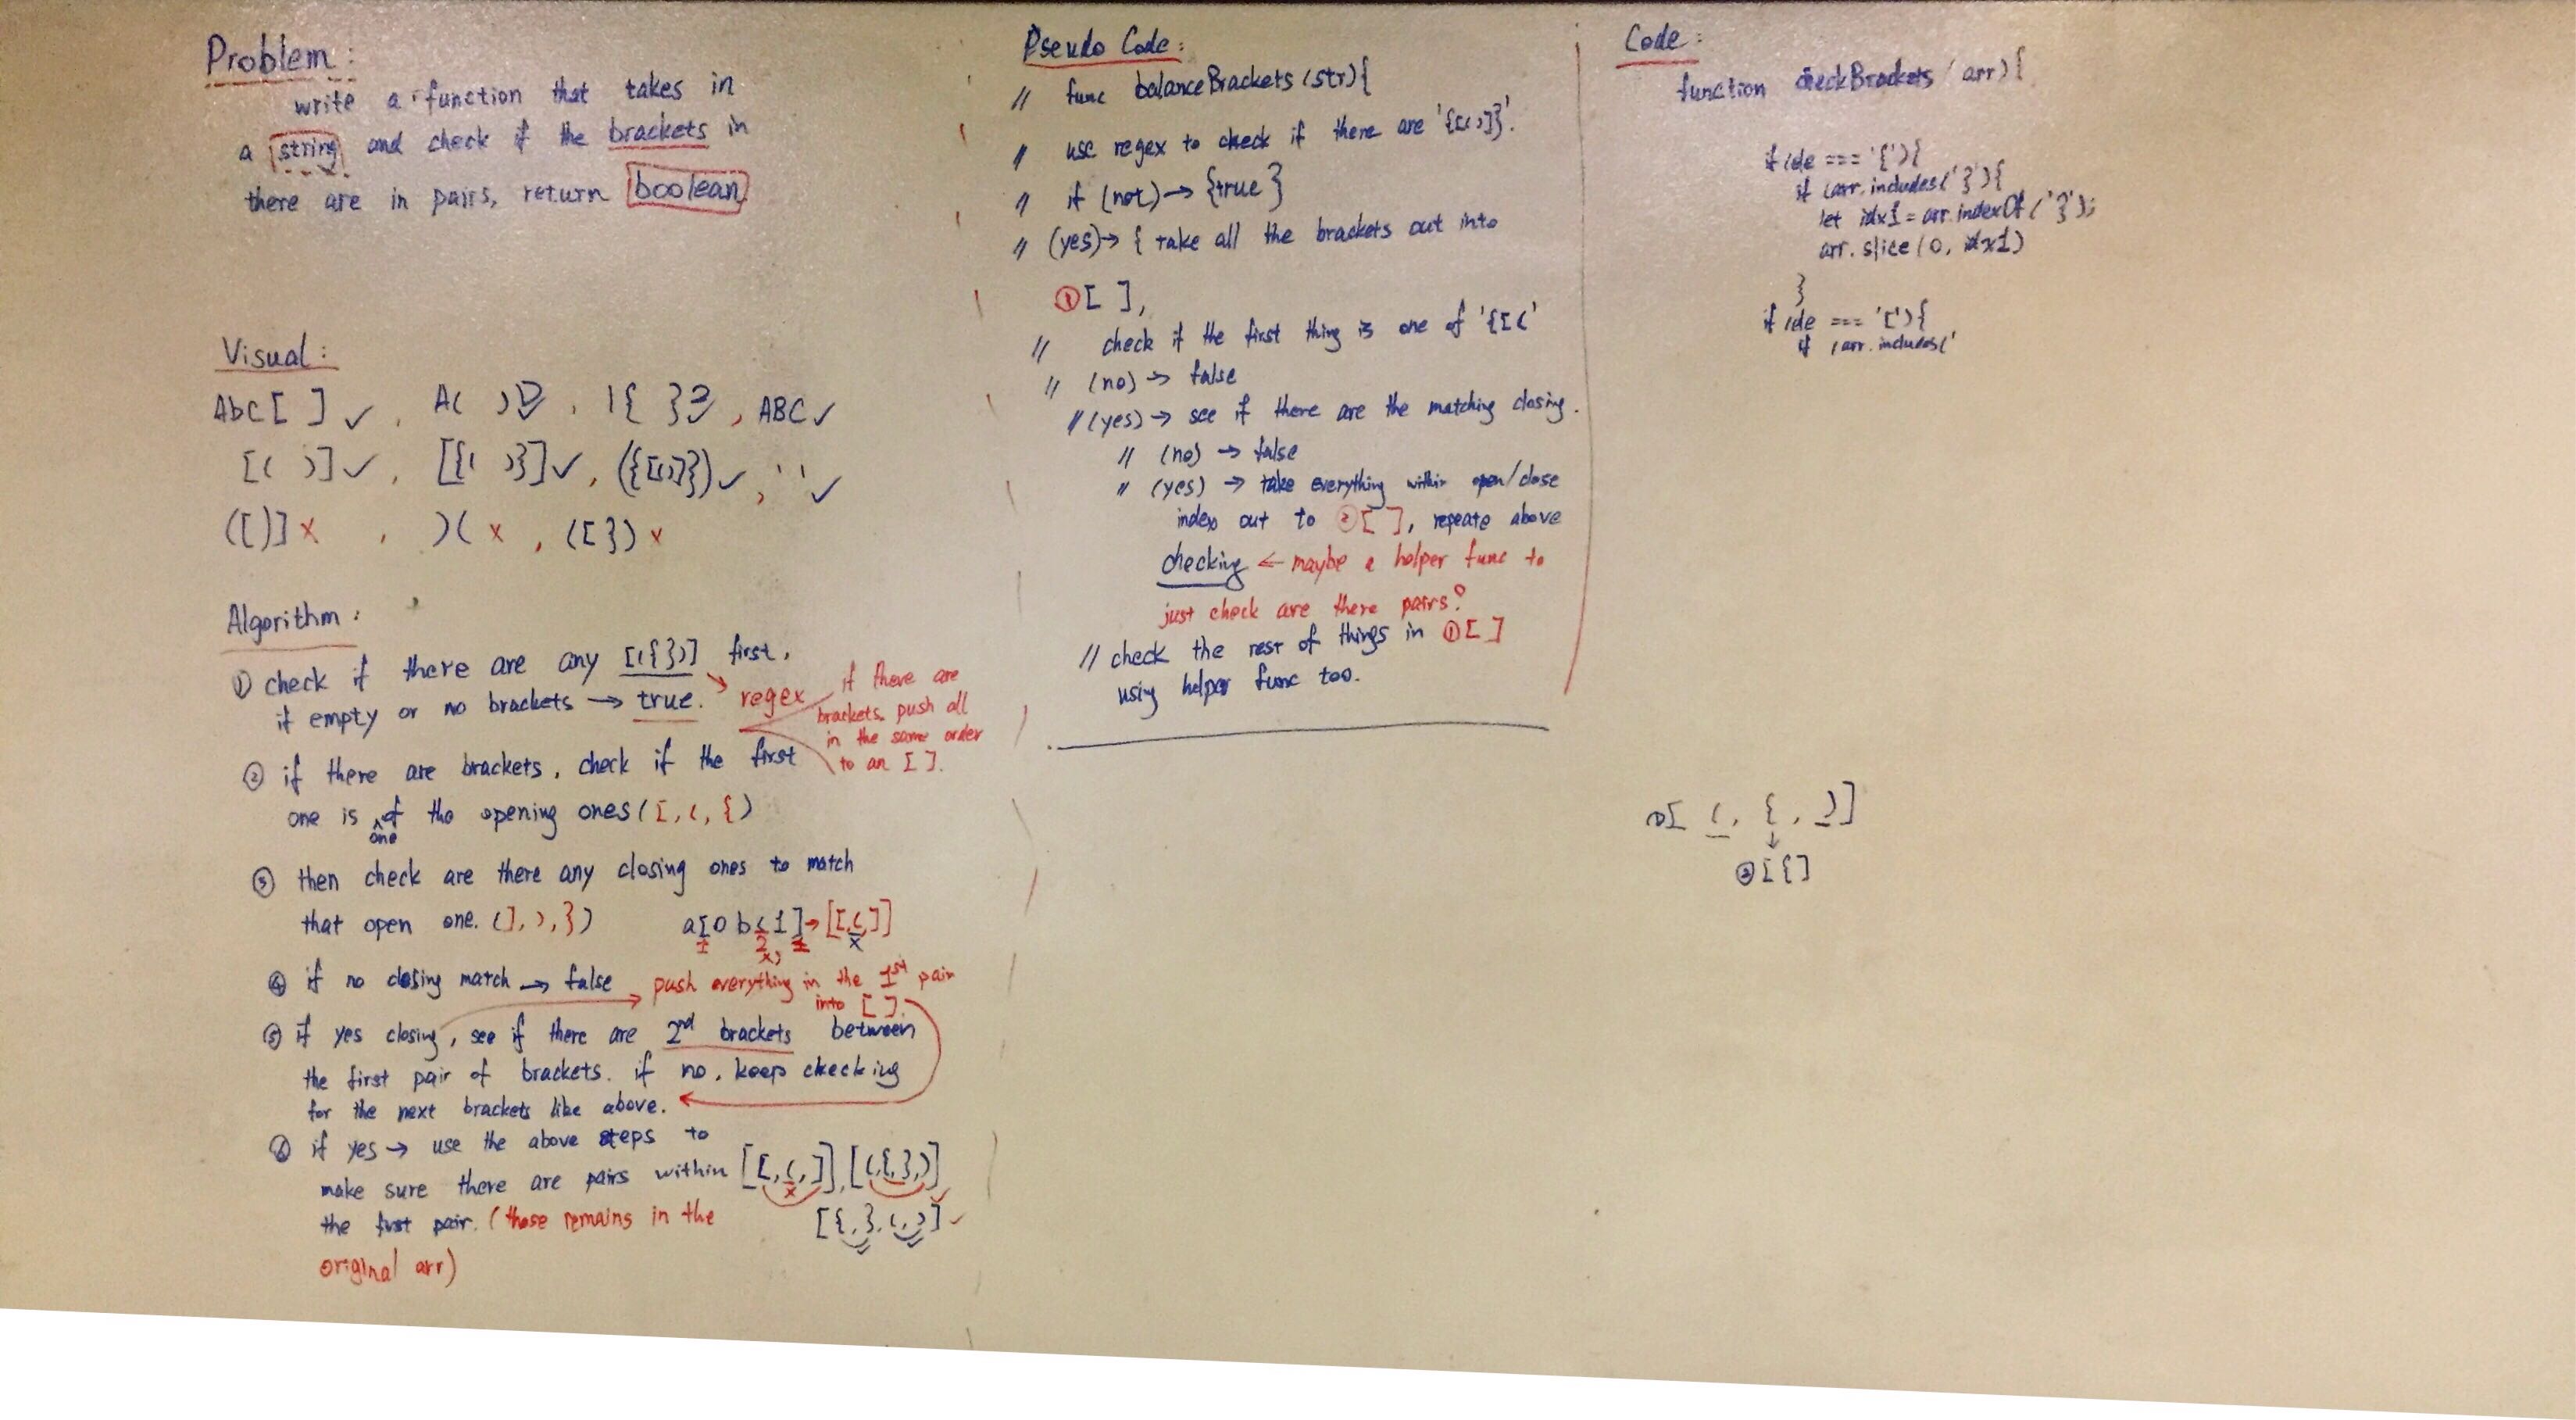 Problem:
write a function that takes in
a string and check if the brackets in
there are in pairs, return boolean
Visual:
Abc[ ] ✓ , A( ) ✓ , 1{ } ✓ , ABC ✓
[( )] ✓ , [{( )}] ✓ , ({[()]}) ✓ , ' ' ✓
([)] x , )( x , ([}) x
Algorithm:
① check if there are any [({})] first,
if empty or no brackets → true.
regex
if there are
brackets, push all
in the same order
to an [ ].
② if there are brackets, check if the first
one is one of the opening ones ([, (, {)
③ then check are there any closing ones to match
that open one. (], ), })
a[0b(1] → [[,(,]]
1 2 1
x x
④ if no closing match → false
push everything in the 1st pair
into [ ].
⑤ if yes closing, see if there are 2nd brackets between
the first pair of brackets. if no, keep checking
for the next brackets like above.
⑥ if yes → use the above steps to
make sure there are pairs within
the first pair. (those remains in the
original arr)
[[,(,]], [(,{,},)]
x ✓
[{,},(,)] ✓
Pseudo Code:
// func balanceBrackets (str){
// use regex to check if there are '{[()]}'.
// if (not) → {true }
// (yes) → { take all the brackets out into
①[ ],
// check if the first thing is one of '{[('
// (no) → false
// (yes) → see if there are the matching closing.
// (no) → false
// (yes) → take everything within open/close
index out to ②[ ], repeate above
checking ← maybe a helper func to
just check are there pairs?
// check the rest of things in ①[ ]
using helper func too.
Code:
function checkBrackets (arr){
if (de === '{'){
if (arr.includes('}'){
let idx1 = arr.indexOf('}');
arr.slice(0, idx1)
}
if (de === '['){
if (arr.includes('
①[ (, {, )]
↓
②[{]